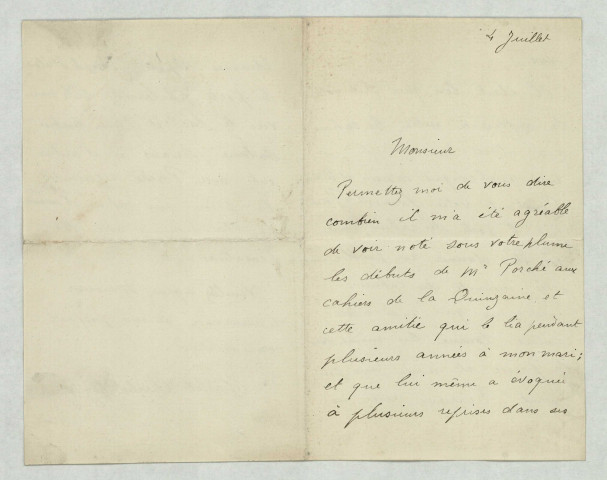 4 Juillet
Monsieur
Permettez moi de vous dire
combien il m'a été agréable
de voir noté sous votre plume
les débuts de Mr Porché aux
cahiers de la Quinzaine, et
cette amitie qui le lia pendant
plusieurs années à mon mari;
et que lui même a évoquée
à plusieurs reprises dans ses